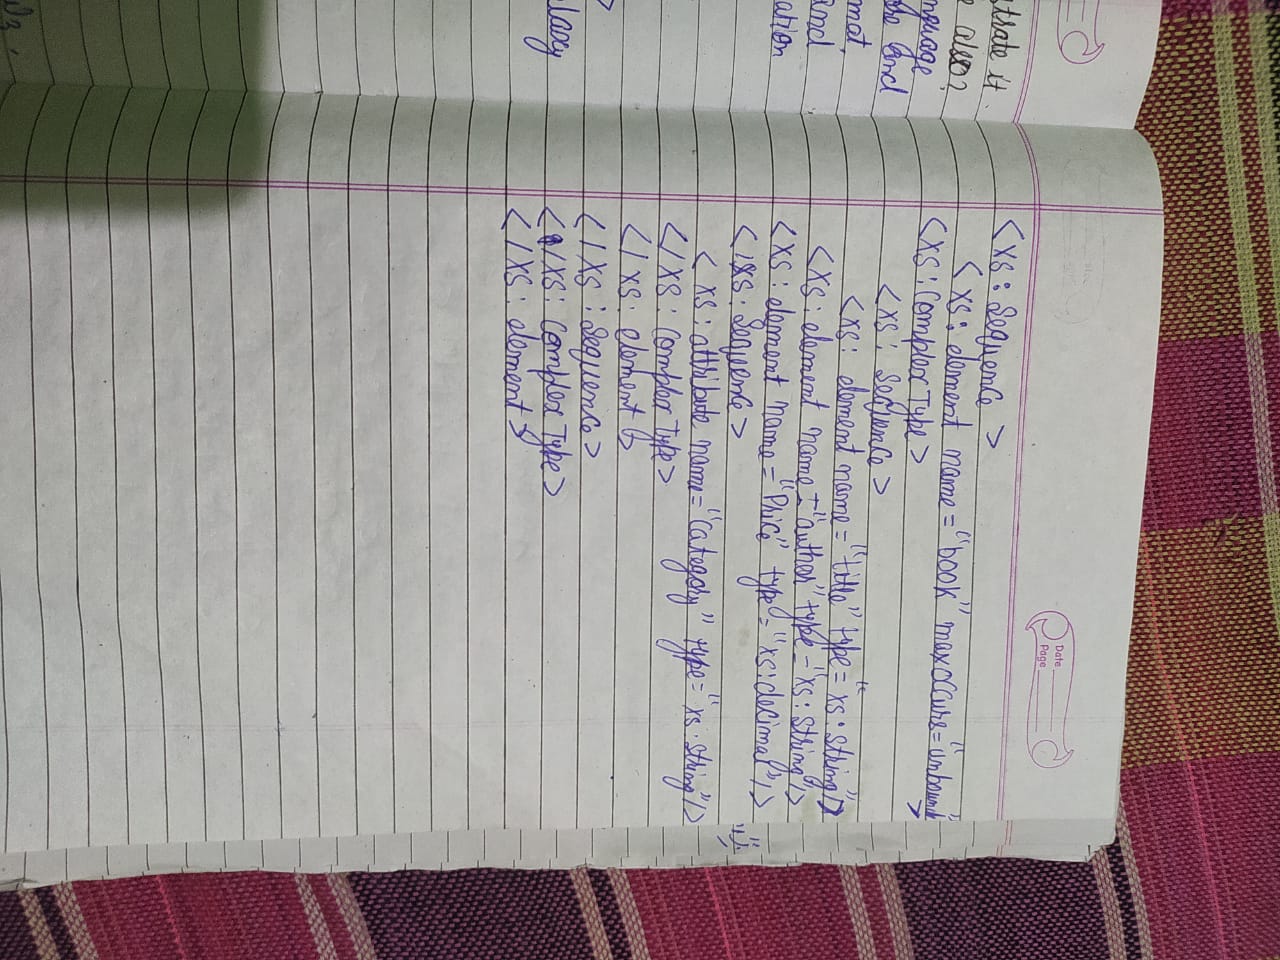 Date
Page
trate it.
also?
nguage
and
mat,
and
ation
<xs : Sequence >
<xs : element name = "book" maxoccurs = "unbound"
>
<xs : Complex Type>
<xs : Sequence>
<xs : element name = "title" type = "xs : string"/>
<xs : element name = "author" type = "xs : string"/>
<xs : element name = "Price" type = "xs : decimal"/>
</xs : Sequence>
<xs : attribute name = "Category" type = "xs : string"/>
</xs : Complex Type>
</xs : element >
</xs : Sequence>
</xs : Complex Type>
</xs : element>